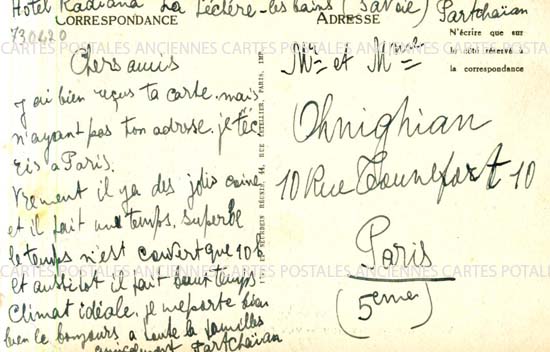 Hotel Radiana La Léclère-les bains (Savoie) Partchaïan
CORRESPONDANCE
ADRESSE
730420
N'écrire que sur
le côté réservé à
la correspondance
CARTES POSTALES ANCIENNES CARTES POSTALES ANCIENNES CARTES POSTALES
Chers amis
J'ai bien reçus ta carte, mais
n'ayant pas ton adresse, je t'éc
ris a Paris.
Vrement il ya des jolis coins
et il fait une temps, superbe
le temps n'est couvert que 10
et aussitot il fait beau temps.
Climat idéale, je me porte bien
bien le bonjours a toute la familles
amicalement Partchaïan
Mr et Mme
Ohnighian
10 Rue Tournefort 10
Paris
(5eme)
CARTES POSTALES ANCIENNES CARTES POSTALES ANCIENNES CARTES POTALES